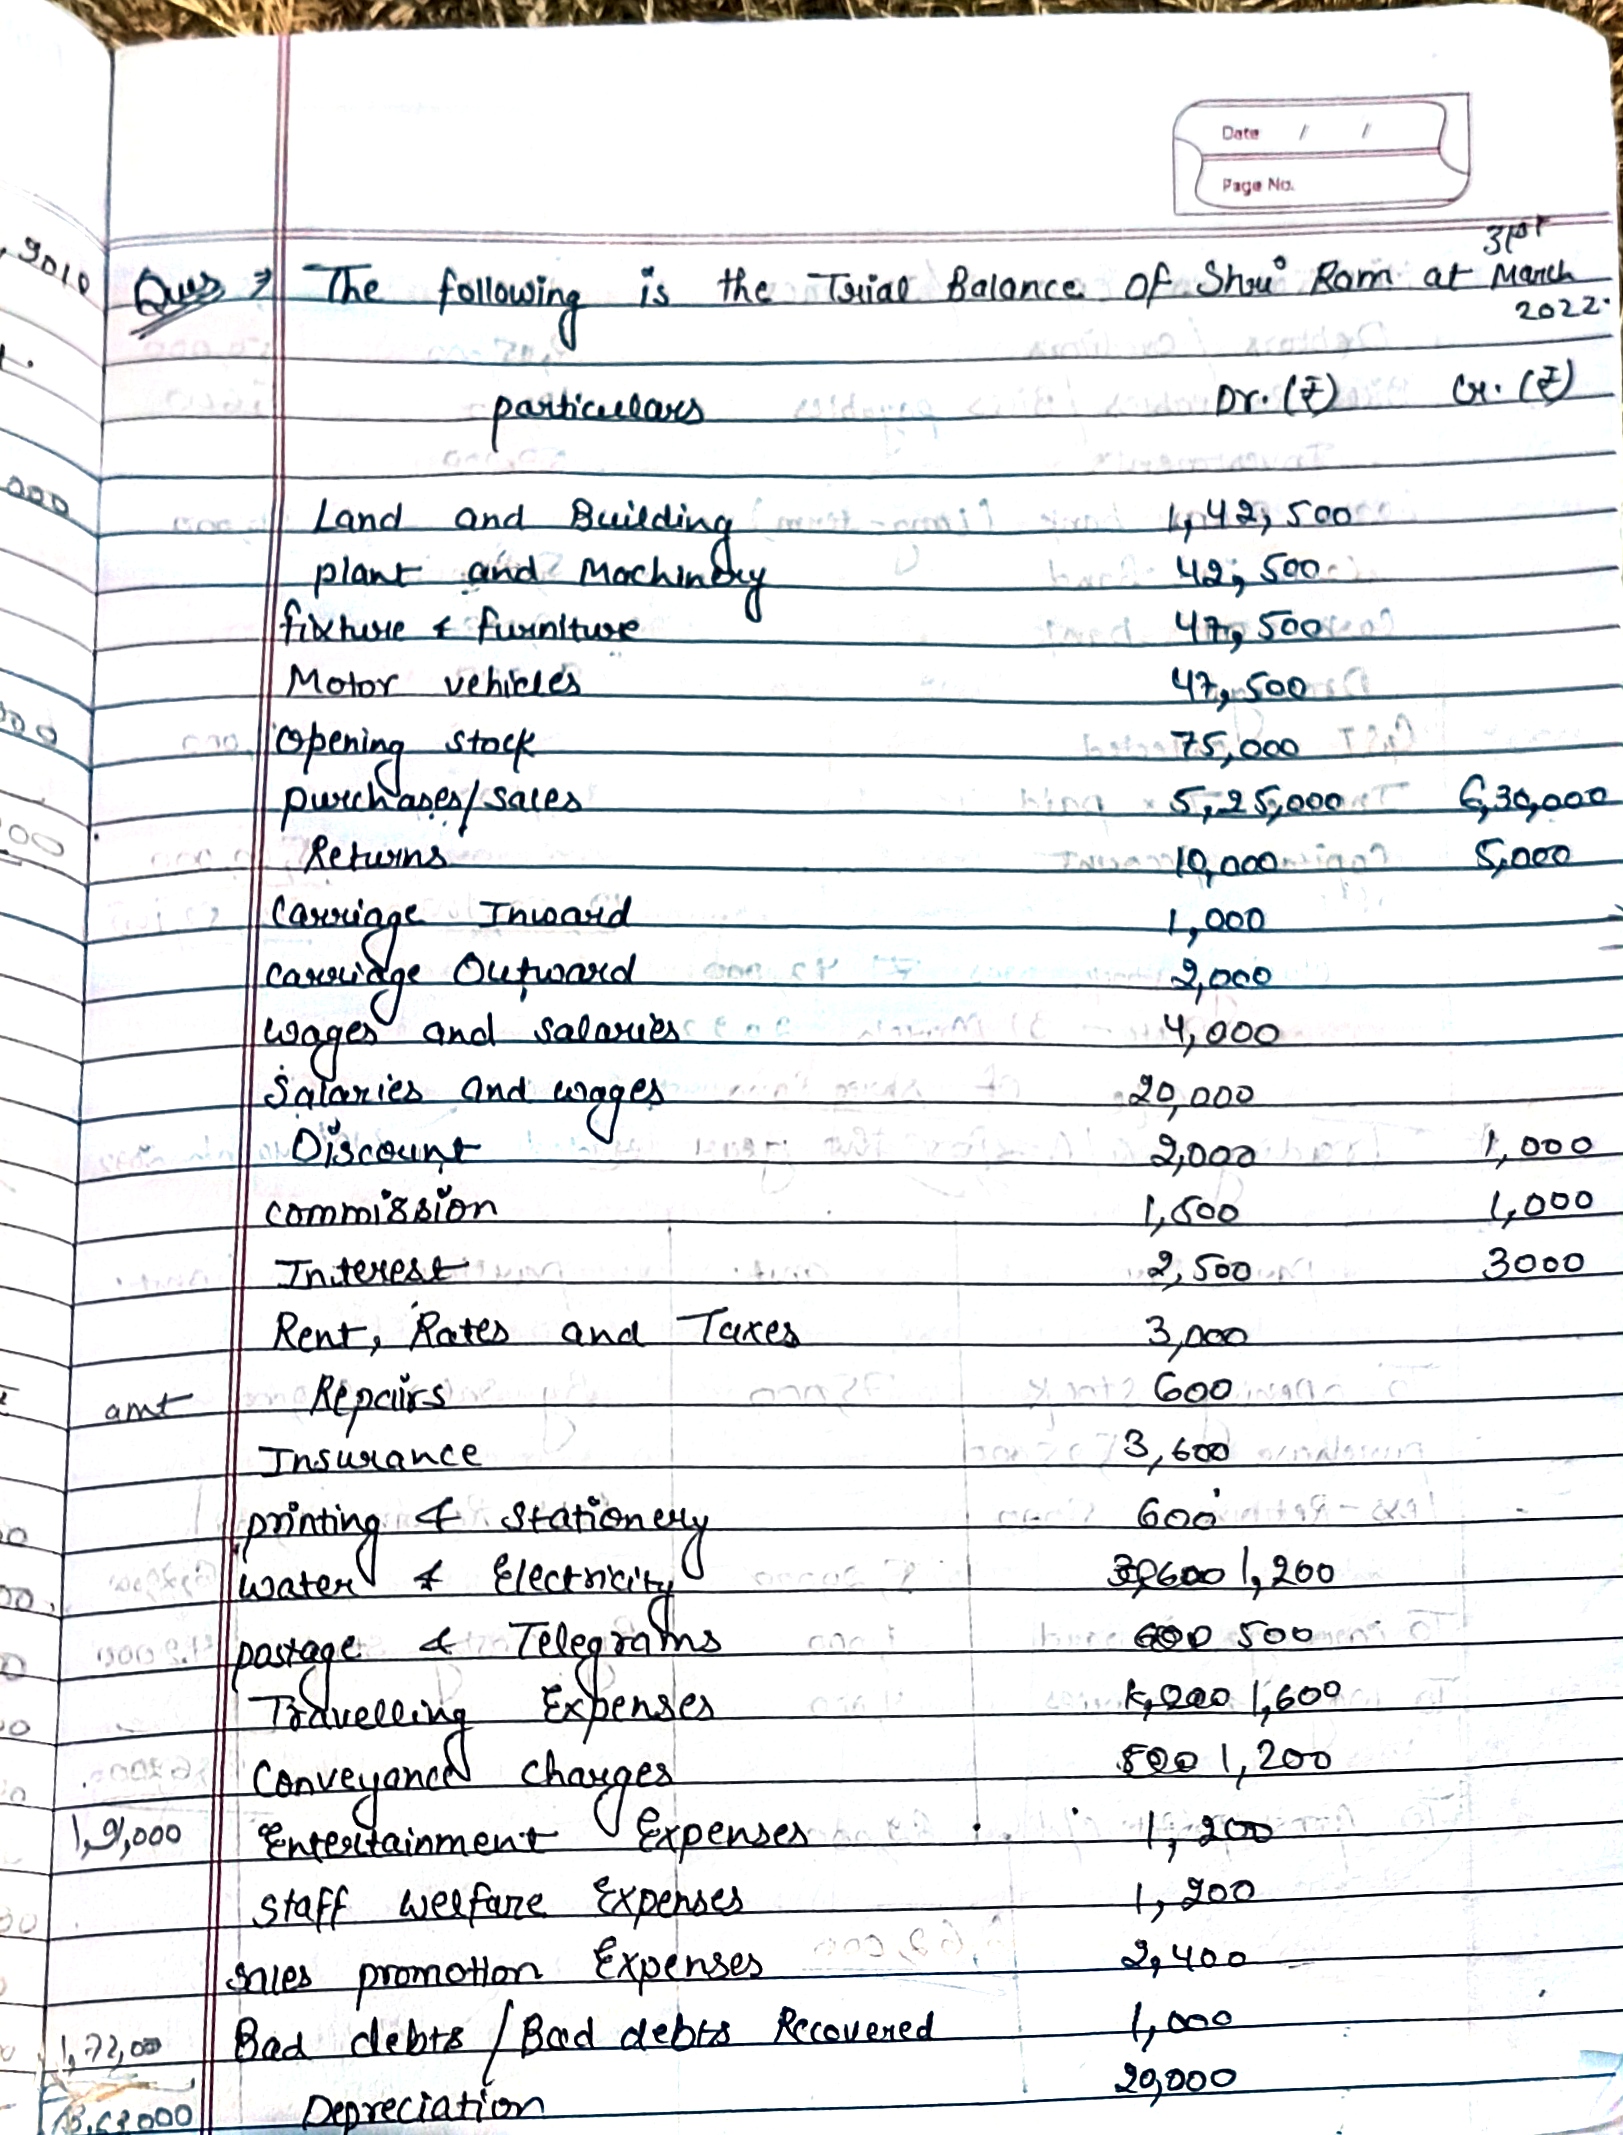 Date / /
Page No.
31st
Ques → The following is the Trial Balance of Shri Ram at March
2022.
particulars Dr. (₹) Cr. (₹)
Land and Building 1,42,500
plant and Machinery 42,500
fixture & furniture 47,500
Motor vehicles 47,500
opening stock 75,000
purchases/sales 5,25,000 6,30,000
Returns 10,000 5,000
Carriage Inward 1,000
carriage Outward 2,000
wages and salaries 4,000
Salaries and wages 20,000
Discount 2,000 1,000
commission 1,500 1,000
Interest 2,500 3000
Rent, Rates and Taxes 3,000
amt Repairs 600
Insurance 3,600
printing & Stationery 600
water & Electricity 1,200
postage & Telegrams 500
Travelling Expenses 1,600
Conveyance charges 1,200
Entertainment Expenses 1,200
staff welfare Expenses 1,200
sales promotion Expenses 2,400
Bad debts / Bad debts Recovered 1,000
Depreciation 20,000